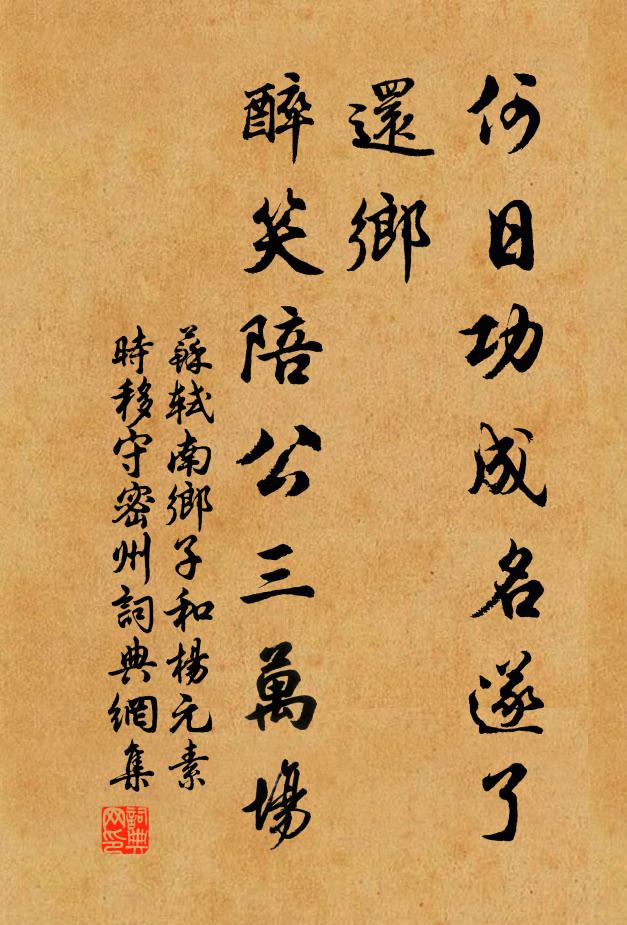 何日功成名遂了
還鄉
醉笑陪公三萬場
蘇軾南鄉子和楊元素
時移守密州詞典網集
詞典
网印